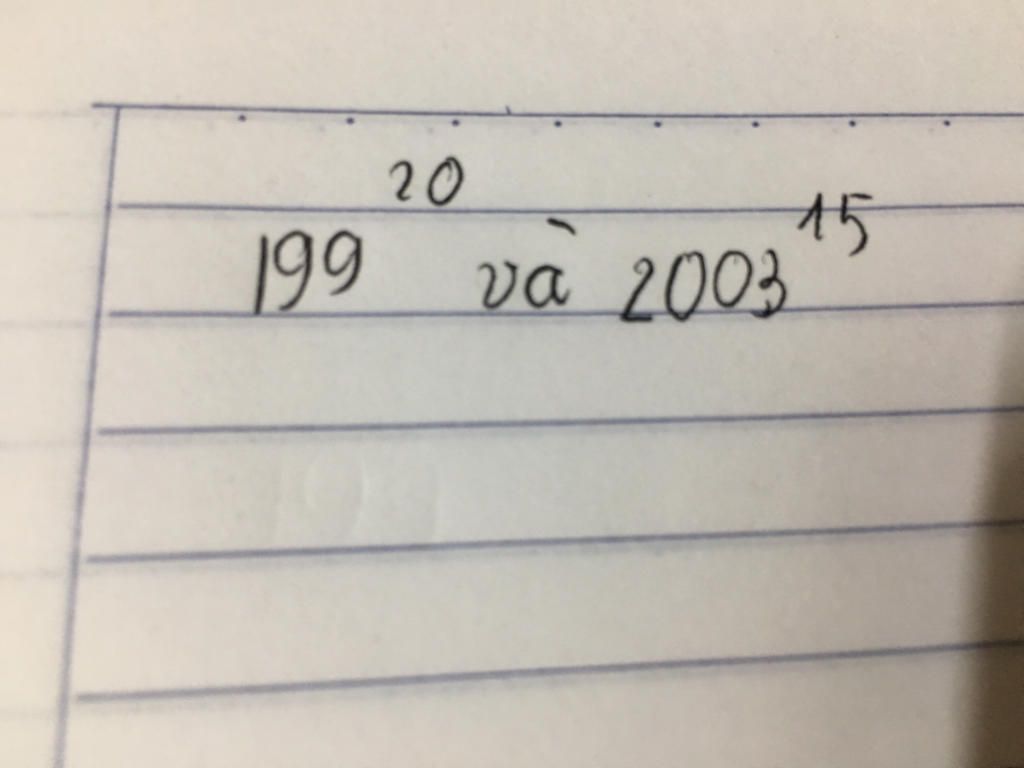 199²⁰ và 2003¹⁵